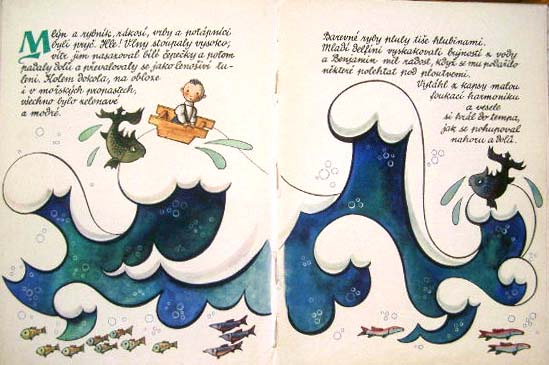 Mlýn a rybník, rákosí, vrby a potápníci
byli pryč. Hle! Vlny stoupaly vysoko;
vítr jim nasazoval bílé čepečky a potom
padaly dolů a převalovaly se jako lenošiví tu-
leni. Kolem dokola, na obloze
i v mořských propastech,
všechno bylo zelenavé
a modré.
Barevné ryby pluly tiše hlubinami.
Mladí delfíni vyskakovali bujností z vody
a Benjamin měl radost, když se mu podařilo
některé polechtat pod ploutvemi.
Vytáhl z kapsy malou
foukací harmoniku
a vesele
si hrál do tempa,
jak se pohupoval
nahoru a dolů.